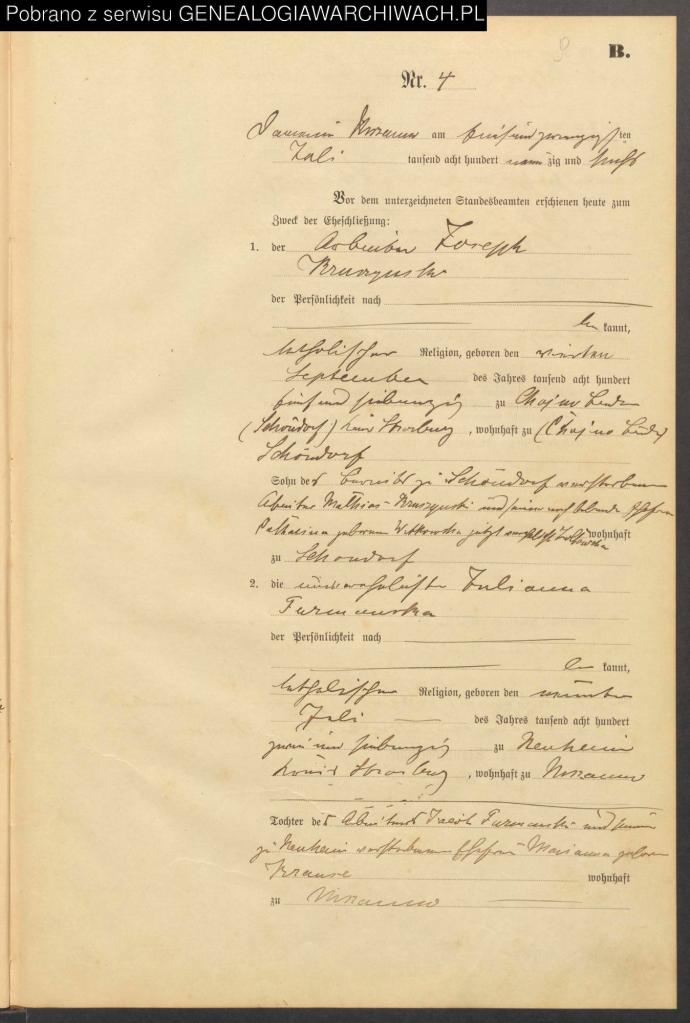 Pobrano z serwisu GENEALOGIAWARCHIWACH.PL
B.
Nr. 4
am fünfundzwanzigsten
Juli tausend acht hundert neunzig und sechs
Vor dem unterzeichneten Standesbeamten erschienen heute zum
Zweck der Eheschließung:
1. der Arbeiter Joseph
Kruszynski
der Persönlichkeit nach
be kannt,
katholischer Religion, geboren den vierten
September des Jahres tausend acht hundert
fünf und siebenzig zu Chojno
(Schöndorf) Strasburg, wohnhaft zu (Chojno
Schöndorf
Sohn des bereits zu Schöndorf verstorbenen
Arbeiter Mathias Kruszynski und seiner noch lebenden Ehefrau
Catharina geborenen Witkowska jetzt wohnhaft
zu Schöndorf
2. die unverehelichte Julianna
Furmanska
der Persönlichkeit nach
be kannt,
katholischer Religion, geboren den neunten
Juli des Jahres tausend acht hundert
zwei und siebenzig zu Neuheim
Kreis Strasburg, wohnhaft zu
Tochter des Arbeiters Jacob Furmanski und seiner
zu Neuheim verstorbenen Ehefrau Marianna geborenen
Krause wohnhaft
zu